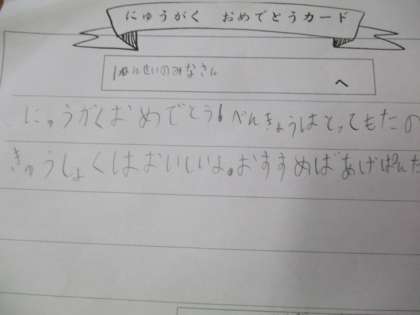 にゅうがく おめでとうカード
1ねんせいのみなさん
へ
にゅうがくおめでとう!べんきょうはとってもたの
きゅうしょくはおいしいよ。おすすめはあげぱんだ